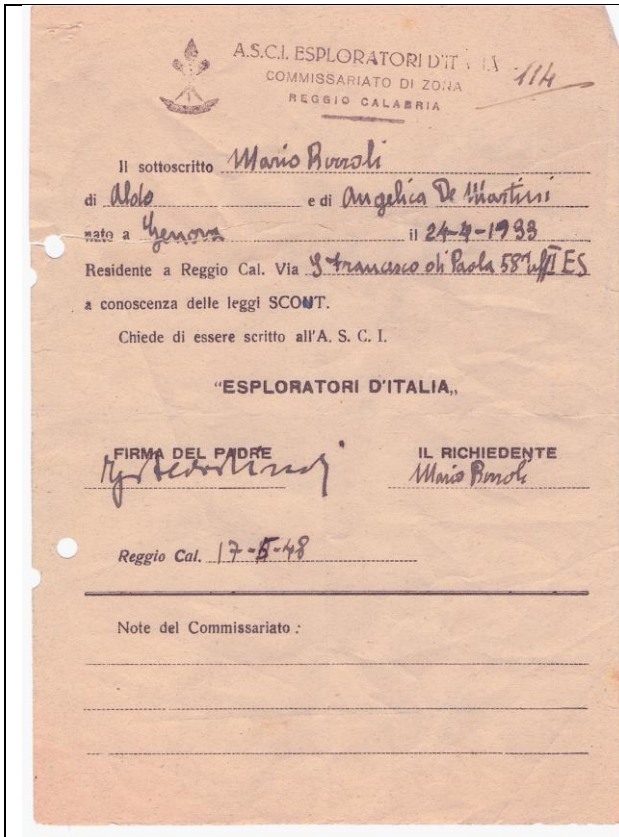 A.S.C.I. ESPLORATORI D'IT
COMMISSARIATO DI ZONA
114
REGGIO CALABRIA
Il sottoscritto Mario
di Aldo e di Angelica De Martini
nato a Genova il 24-4-1933
Residente a Reggio Cal. Via S Francesco di Paola 58
a conoscenza delle leggi SCOUT.
Chiede di essere scritto all'A. S. C. I.
"ESPLORATORI D'ITALIA„
FIRMA DEL PADRE IL RICHIEDENTE
Mario
Reggio Cal. 17-5-48
Note del Commissariato :